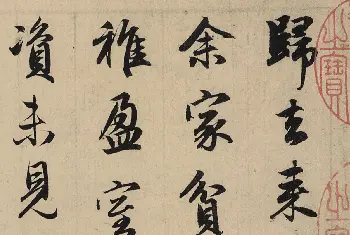 歸去来
余家貧
稚盈室
資未見
之寶